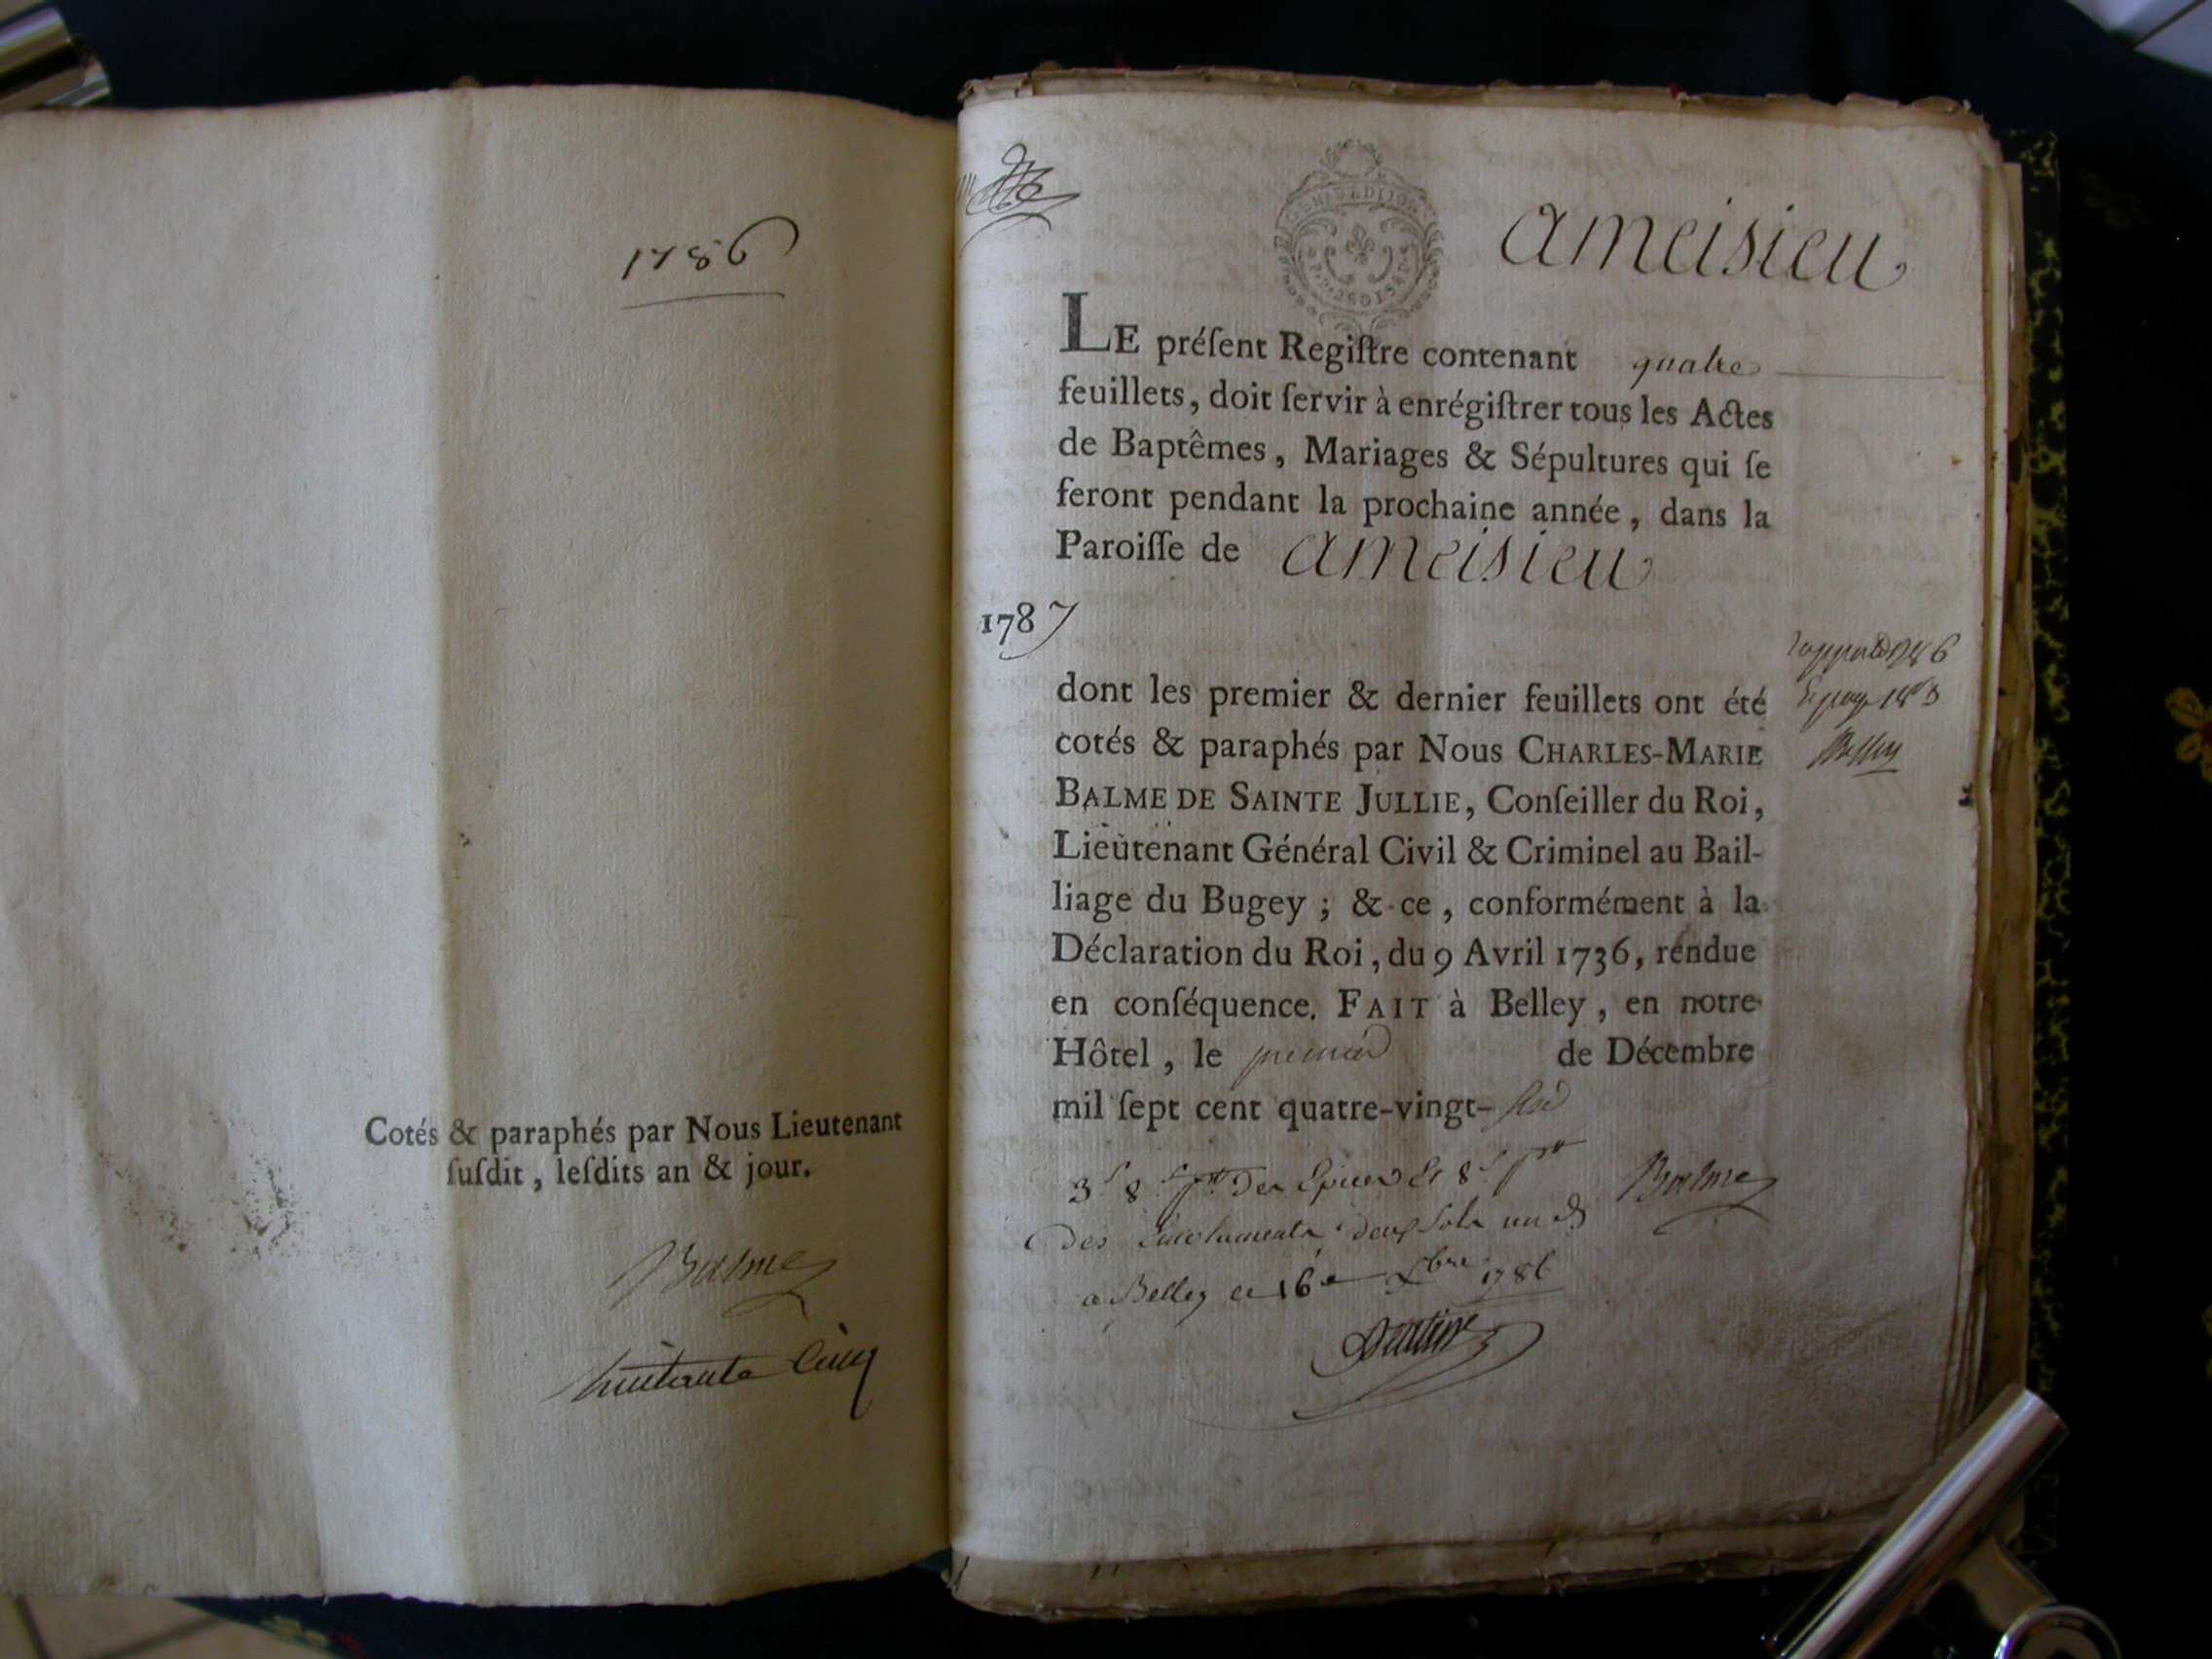 1786
Cotés & paraphés par Nous Lieutenant
ſuſdit, leſdits an & jour.
Balme
huitante Cinq
ameisieu
LE préſent Regiſtre contenant quatre
feuillets, doit ſervir à enrégiſtrer tous les Actes
de Baptêmes, Mariages & Sépultures qui ſe
feront pendant la prochaine année, dans la
Paroiſſe de ameisieu
1787
dont les premier & dernier feuillets ont été
cotés & paraphés par Nous CHARLES-MARIE
BALME DE SAINTE JULLIE, Conſeiller du Roi,
Lieutenant Général Civil & Criminel au Bail-
liage du Bugey ; & ce, conformément à la
Déclaration du Roi, du 9 Avril 1736, rendue
en conſéquence. FAIT à Belley, en notre
Hôtel, le premier de Décembre
mil ſept cent quatre-vingt- six
Balme
a Belley ce 16e Xbre 1786